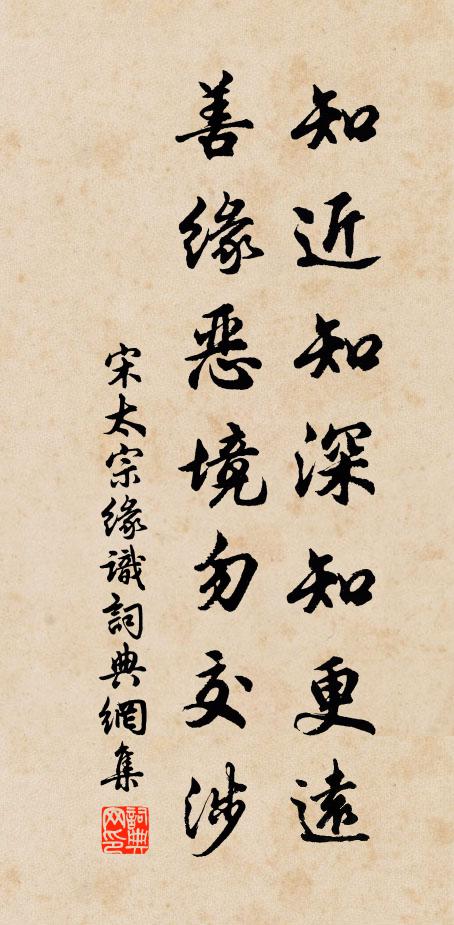 知近知深知更遠
善缘恶境勿交涉
宋太宗缘識詞典網集
詞典网印